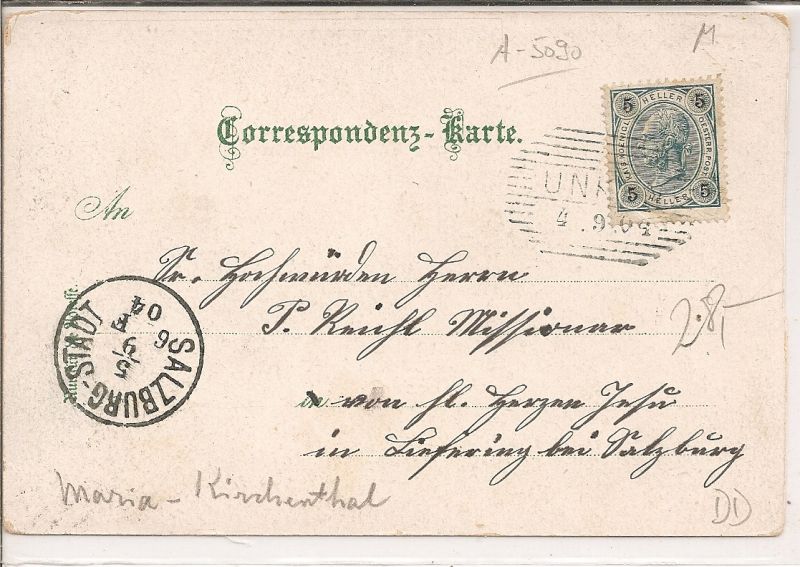 A-5090
M
Correspondenz-Karte.
5 HELLER 5
KAIS. KOENIGL. OESTERR. POST
5 HELLER 5
UN
4.9.04
An
Sr. Hochwürden Herrn
P. Reichl Missionar
von hl. Herzen Jesu
in Liefering bei Salzburg
SALZBURG-STADT
5/9
6 F
04
2.8,-
Maria-Kirchenthal
DD